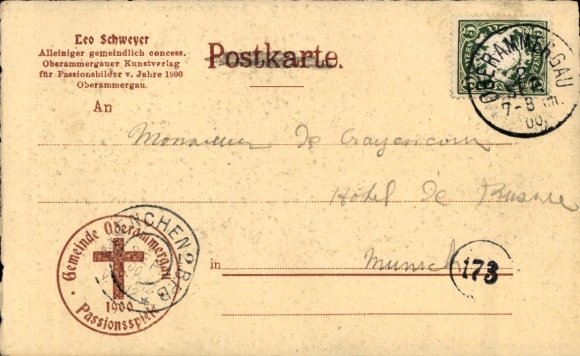 Leo Schweyer
Alleiniger gemeindlich concess.
Oberammergauer Kunstverlag
für Passionsbilder v. Jahre 1900
Oberammergau.
Postkarte.
5 5
OBERAMMERGAU
7-8
00
An
Monsieur de
Hôtel de Russie
in Munich
173
MÜNCHEN 2 B.P.
Gemeinde Oberammergau
1900
Passionsspiele